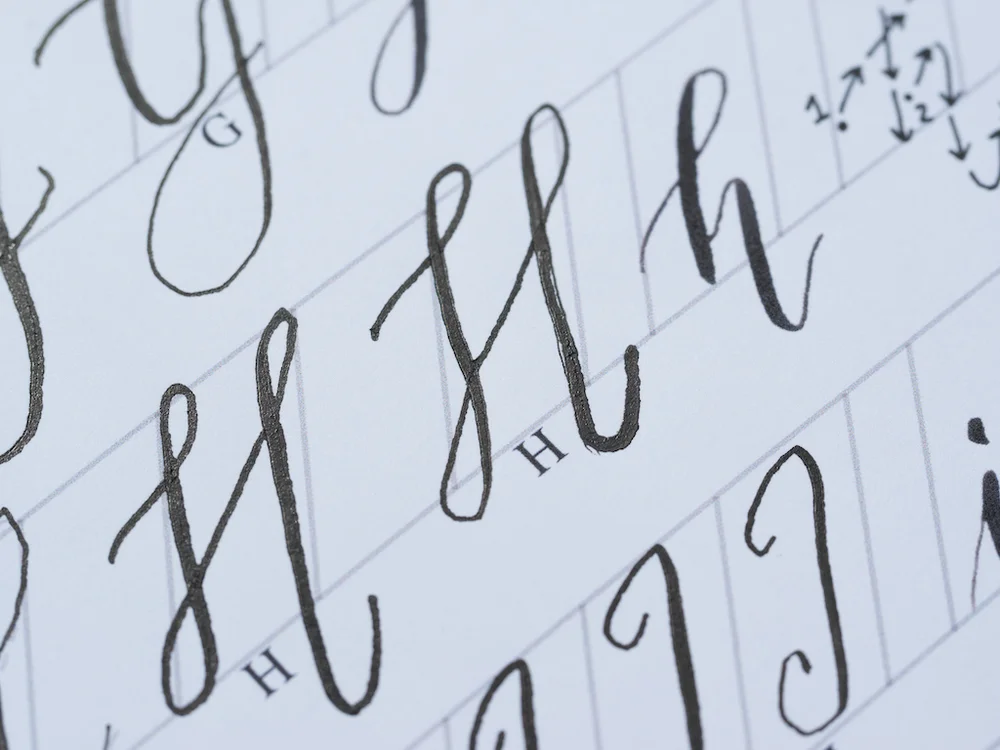 G
H H h 1 2
H H
I I I i